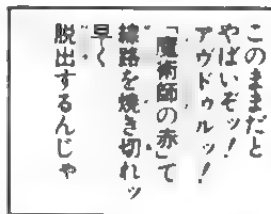 このままだと
やばいぞッ！
アヴドゥルッ！
「魔術師の赤」で
線路を焼き切れッ
早く
脱出するんじゃ